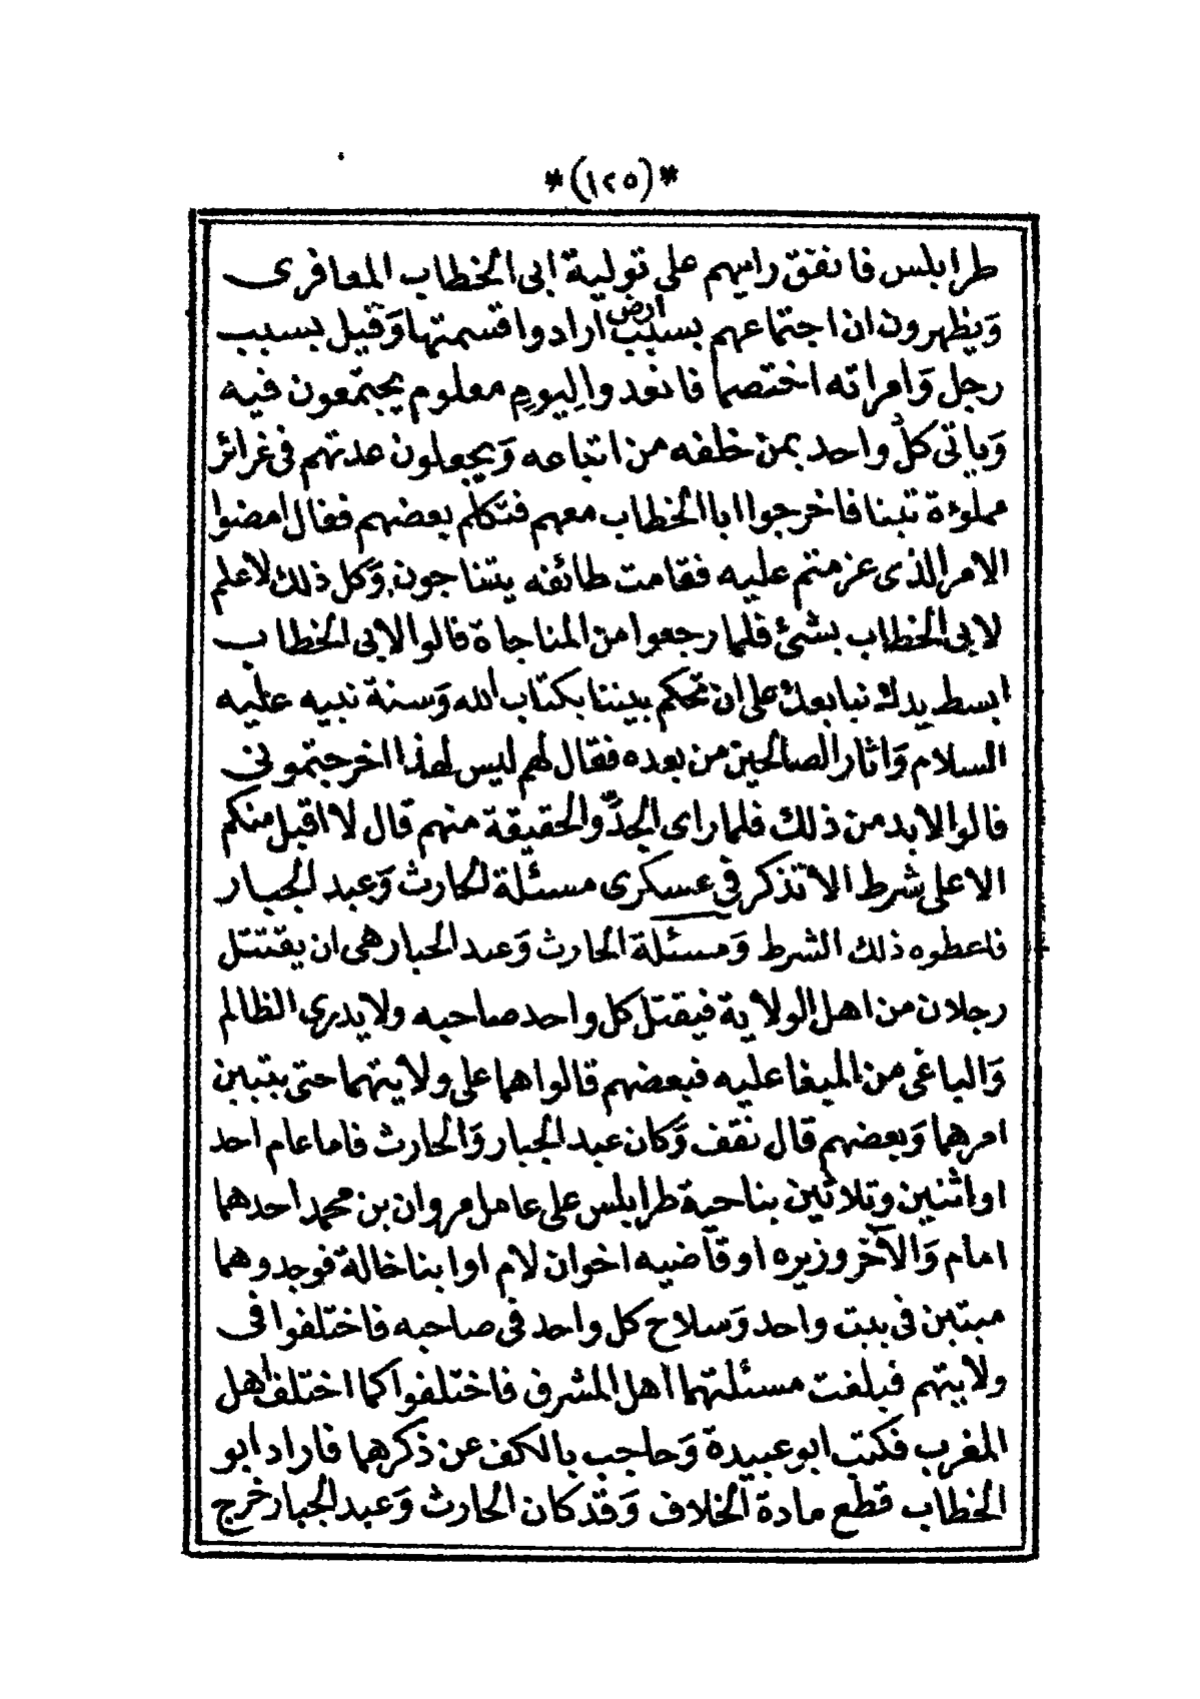 *(١٢٥)*
طرابلس فاتفق رايهم على تولية ابى الخطاب المعافرى
وَيظهرون ان اجتماعهم بسبب ارض ارادوا قسمتها وَقيل بسبب
رجل وَامراته اختصما فاتعدوا ليوم معلوم يجتمعون فيه
وَياتى كل واحد بمن خلفه من اتباعه وَيجعلون عدتهم فى غرائر
مملوءة تبنا فاخرجوا ابا الخطاب معهم فتكلم بعضهم فقال امضوا
الامر الذى عزمتم عليه فقامت طائفه يتناجون وَكل ذلك لاعلم
لابى الخطاب بشئ فلما رجعوا من المناجاة قالوا لابى الخطاب
ابسط يدك نبايعك على ان تحكم بيننا بكتاب الله وَسنة نبيه عليه
السلام وَاثار الصالحين من بعده فقال لهم ليس لهذا اخرجتمونى
قالوا لابد من ذلك فلما راى الجدّ والحقيقة منهم قال لا اقبل منكم
الا على شرط الا تذكر فى عسكرى مسئلة الحارث وَعبد الجبار
فاعطوه ذلك الشرط وَمسئلة الحارث وَعبد الجبار هى ان يقتتل
رجلان من اهل الولاية فيقتل كل واحد صاحبه ولايدرى الظالم
وَالباغى من المبغا عليه فبعضهم قالوا هما على ولايتهما حتى يتبين
امرهما وَبعضهم قال نقف وَكان عبد الجبار وَالحارث قاما عام احد
او اثنين وثلاثين بناحية طرابلس على عامل مروان بن محمد احدهما
امام وَالآخر وزيره او قاضيه اخوان لام او ابنا خالة فوجدوهما
ميتين فى بيت واحد وَسلاح كل واحد فى صاحبه فاختلفوا فى
ولايتهم فبلغت مسئلتهما اهل المشرق فاختلفوا كما اختلف اهل
المغرب فكتب ابو عبيدة وَحاجب بالكف عن ذكرهما فاراد ابو
الخطاب قطع مادة الخلاف وَقد كان الحارث وَعبد الجبار خرج